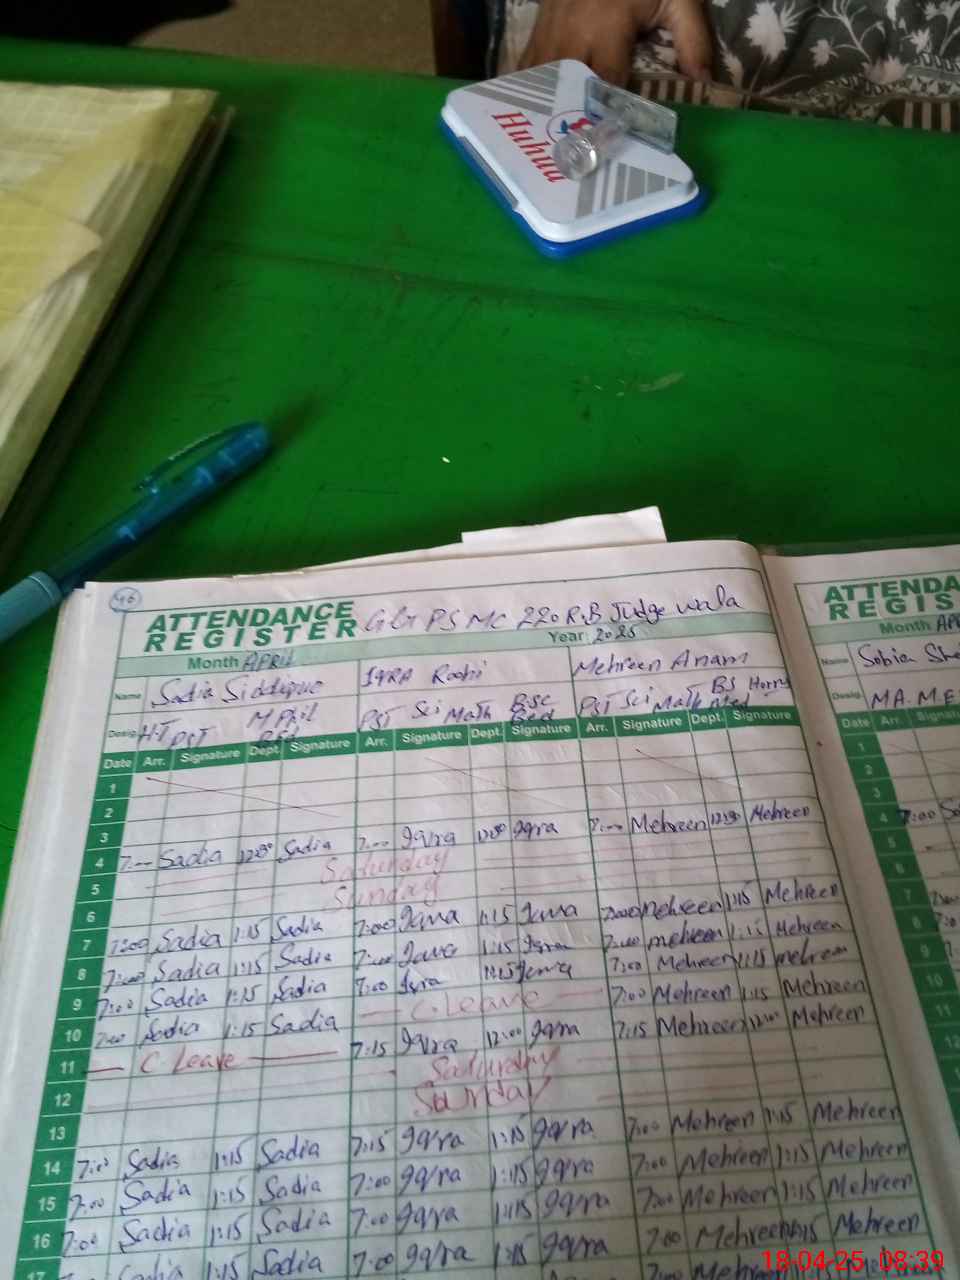 Huhua
46
ATTENDANCE REGISTER GGPS MC 220 R.B Judge wala
Month APRIL Year 2025
Name Sadia Siddique IQRA Roohi Mehreen Anam
Desig. H.T PST M Phil PST Sci Math BSC Bed PST Sci Math BS Horns
Date Arr. Signature Dept. Signature Arr. Signature Dept. Signature Arr. Signature Dept. Signature
1
2
3
4 7:00 Sadia 12:30 Sadia 7:00 Iqra 12:30 Iqra 7:00 Mehreen 12:30 Mehreen
5 Saturday
6 Sunday
7 7:00 Sadia 1:15 Sadia 7:00 Iqra 1:15 Iqra 7:00 Mehreen 1:15 Mehreen
8 7:00 Sadia 1:15 Sadia 7:00 Iqra 1:15 Iqra 7:00 Mehreen 1:15 Mehreen
9 7:00 Sadia 1:15 Sadia 7:00 Iqra 1:15 Iqra 7:00 Mehreen 1:15 Mehreen
10 7:00 Sadia 1:15 Sadia C.Leave 7:00 Mehreen 1:15 Mehreen
11 C.Leave 7:15 Iqra 12:00 Iqra 7:15 Mehreen 12:00 Mehreen
12 Saturday
13 Sunday
14 7:00 Sadia 1:15 Sadia 7:15 Iqra 1:15 Iqra 7:00 Mehreen 1:15 Mehreen
15 7:00 Sadia 1:15 Sadia 7:00 Iqra 1:15 Iqra 7:00 Mehreen 1:15 Mehreen
16 7:00 Sadia 1:15 Sadia 7:00 Iqra 1:15 Iqra 7:00 Mehreen 1:15 Mehreen
17 Sadia 1:15 Sadia 7:00 Iqra 1:15 Iqra 7:00 Mehreen
ATTENDA
REGIS
Month APR
Name Sobia She
Desig. MA. M.E
Date Arr. Signatur
1
2
3
4 7:00 So
5
6
7
8
9
10
11
12
18-04-25 08:39